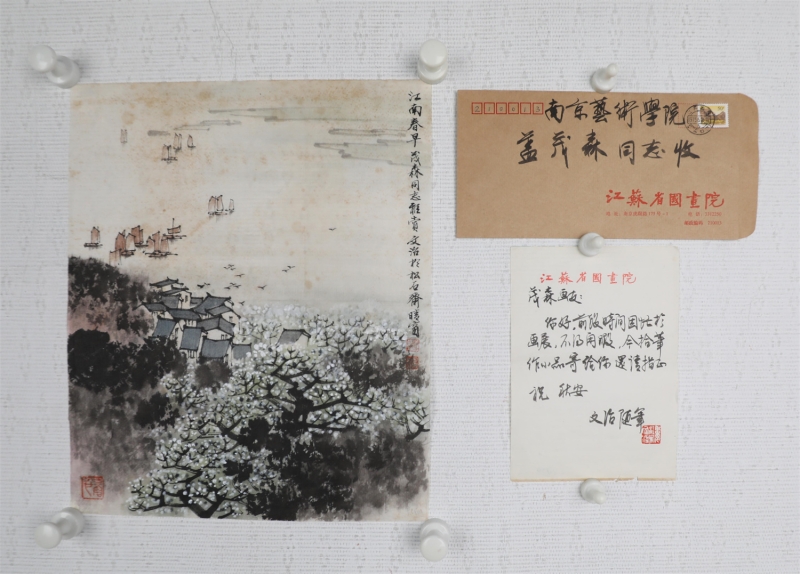 江南春早茂森同志雅賞文治於松石齋晴窗
南京藝術學院
盖茂森同志收
江蘇省國畫院
江蘇省國畫院
茂森画友:
你好,前段時间因忙於
画展,不得闲暇,今拾筆
作小品寄给你還請指正
祝 秋安
文治随筆